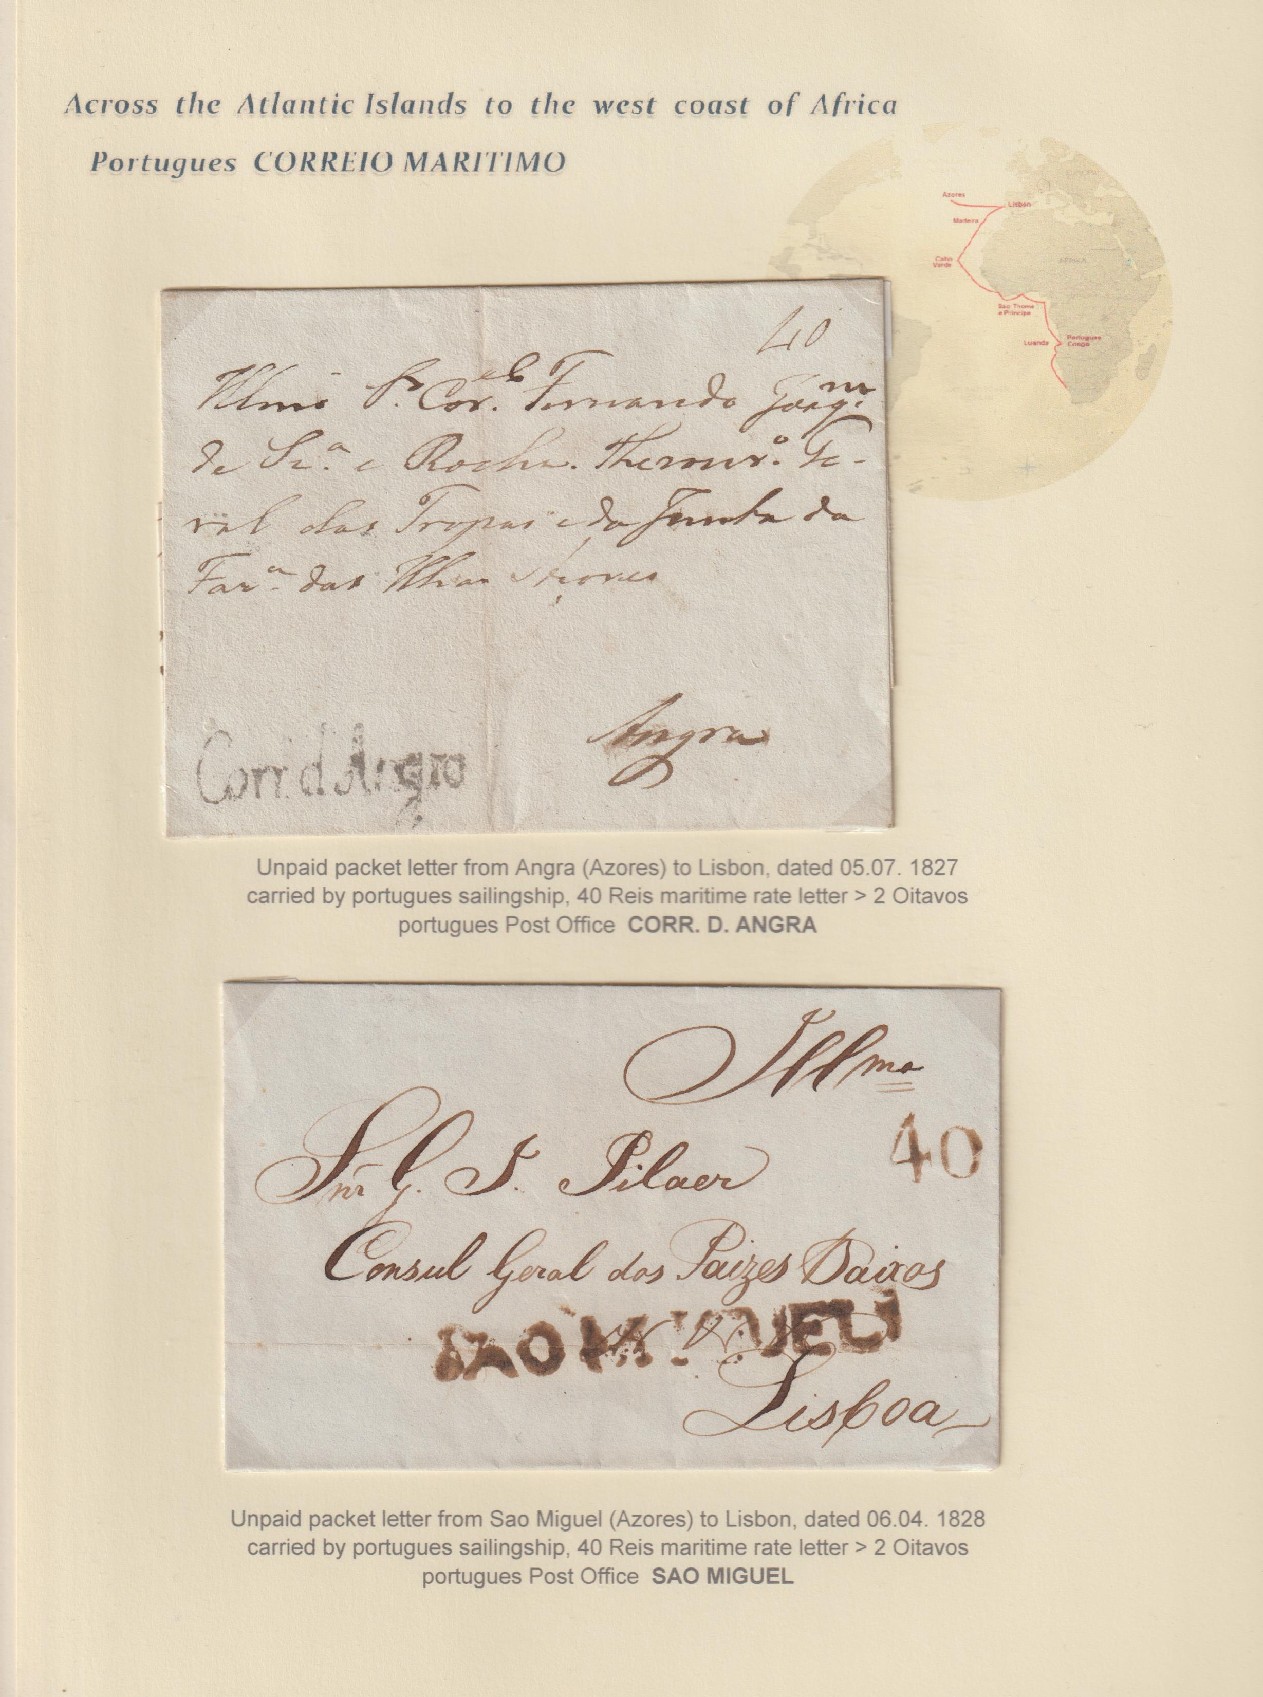 Across the Atlantic Islands to the west coast of Africa
Portugues CORREIO MARITIMO
Azores
Lisbon
Madeira
Cabo Verde
AFRICA
Sao Thome e Principe
Luanda
Portugues Congo
40
Illmo Sr. Cor.el Fernando Joaqm.
de Sz.a e Rocha. Thezour.o Ge-
ral das Tropas e da Junta da
Faz.a das Ilhas
Angra
Corr. d. Angra
Unpaid packet letter from Angra (Azores) to Lisbon, dated 05.07. 1827
carried by portugues sailingship, 40 Reis maritime rate letter > 2 Oitavos
portugues Post Office CORR. D. ANGRA
Illmo
40
Snr G. J. Pilaer
Consul Geral dos Paizes Baixos
SAO MIGUEL
Lisboa
Unpaid packet letter from Sao Miguel (Azores) to Lisbon, dated 06.04. 1828
carried by portugues sailingship, 40 Reis maritime rate letter > 2 Oitavos
portugues Post Office SAO MIGUEL